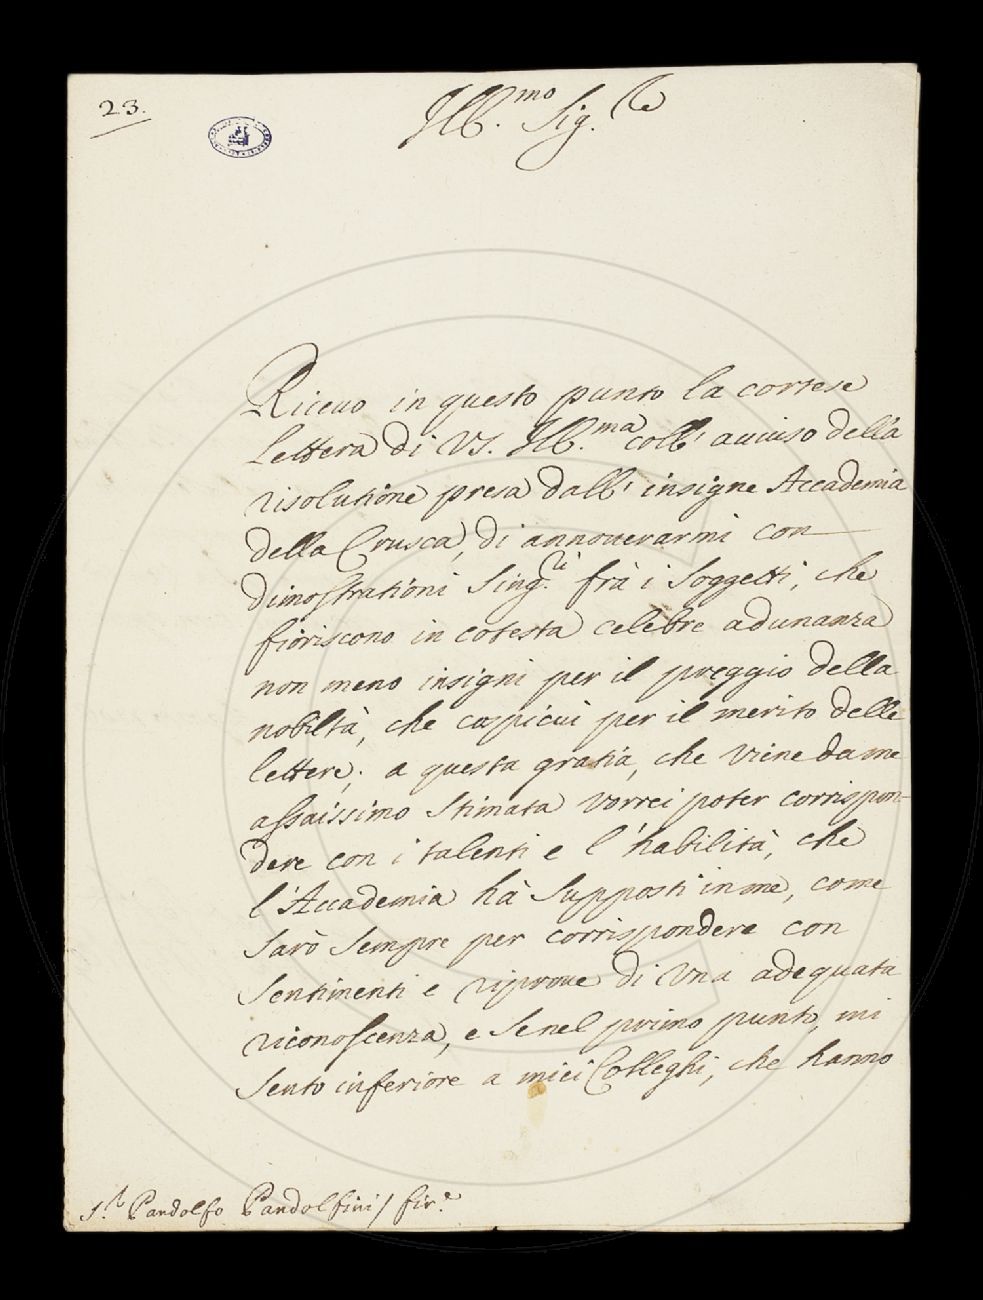 23.
Ill.mo Sig.re
Riceuo in questo punto la cortese
lettera di VS. Ill.ma coll' auuiso della
risolutione presa dall' insigne Accademia
della Crusca, di annouerarmi con
dimostrationi sing.li frà i soggetti, che
fioriscono in cotesta celebre adunanza
non meno insigni per il preggio della
nobiltà, che cospicui per il merito delle
lettere; a questa gratia, che viene da me
assaissimo stimata vorrei poter corrispon=
dere con i talenti e l'habilità, che
l'Accademia hà supposti in me, come
sarò sempre per corrispondere con
sentimenti e riproue di vna adequata
riconoscenza, e se nel primo punto, mi
sento inferiore a miei Colleghi, che hanno
S.r Pandolfo Pandolfini / fir.e